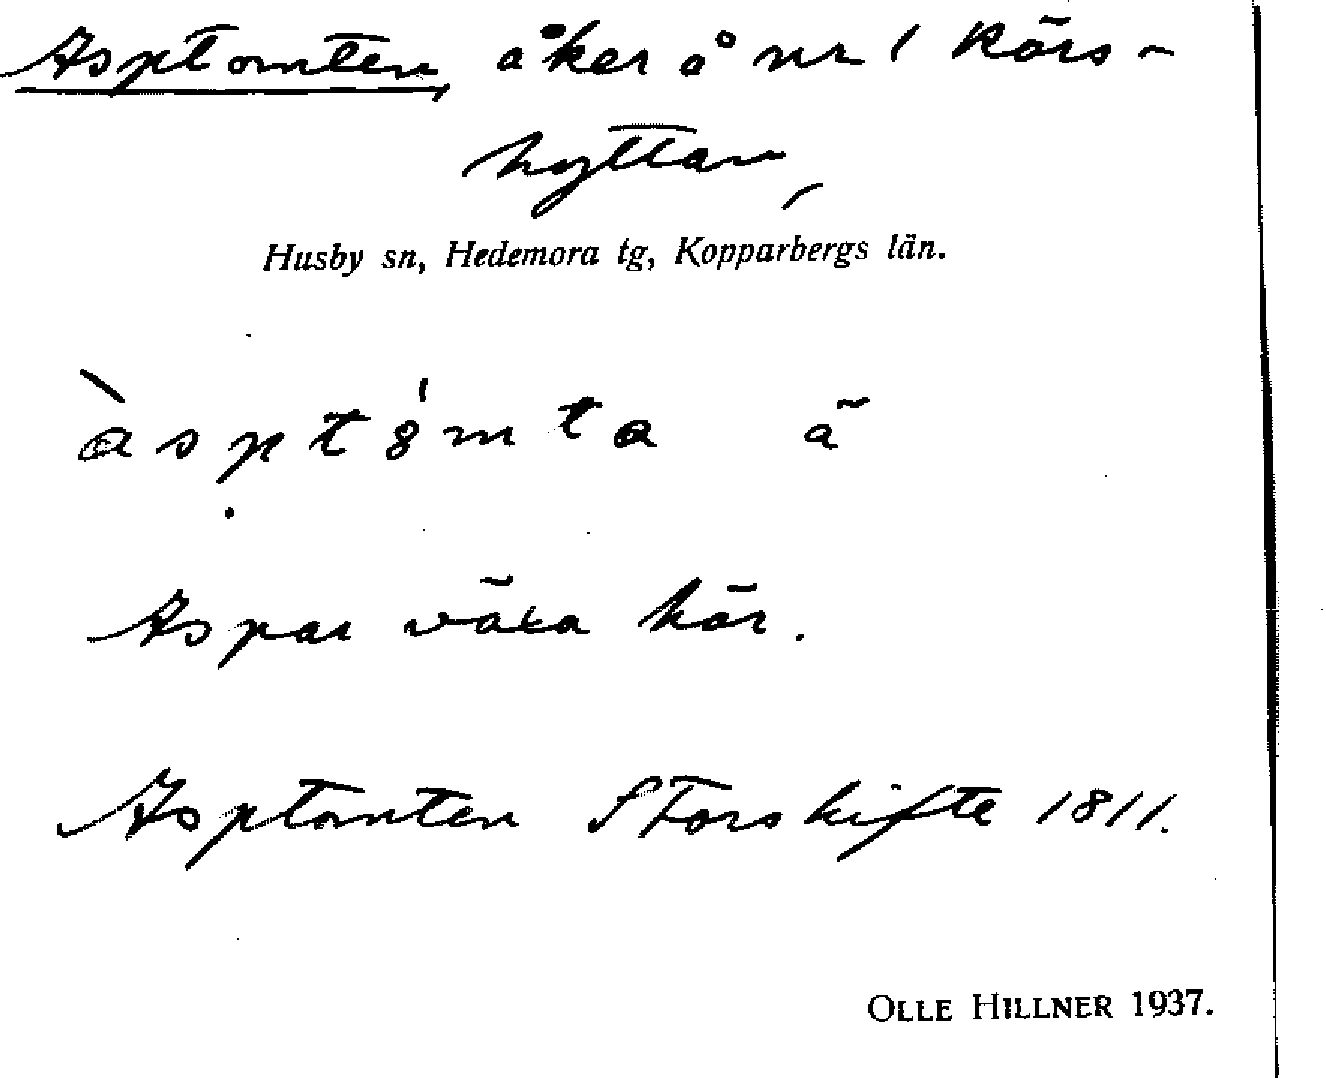 Asptomten, åker å nr 1 Kårs-
hyttan,
Husby sn, Hedemora tg, Kopparbergs län.
àsptǿmta ā
Aspar växa här.
Asptomten Storskifte 1811.
OLLE HILLNER 1937.